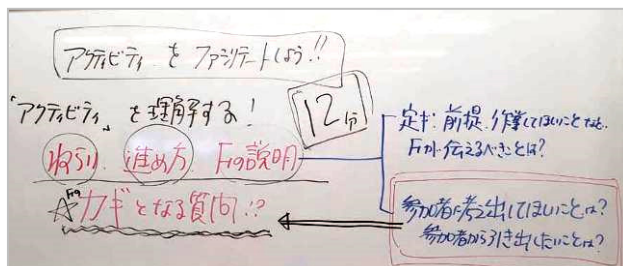 アクティビティ を ファシリテートしよう!!
「アクティビティ」 を理解する!
12分
ねらい 進め方 Fの説明
☆カギとなる質問!?
前提、作業してほしいことなど
Fが伝えるべきことは?
参加者に考え出してほしいことは?
参加者から引き出したいことは?